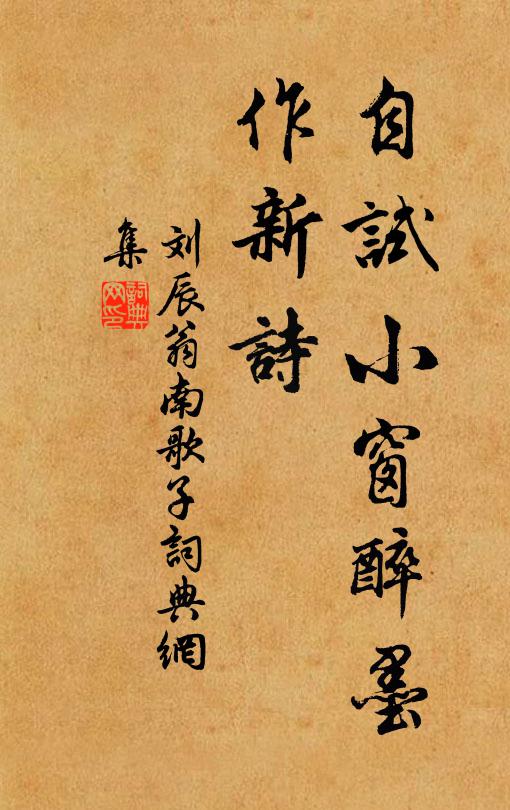 自試小窗醉墨
作新詩
刘辰翁南歌子詞典網
集
詞典網印